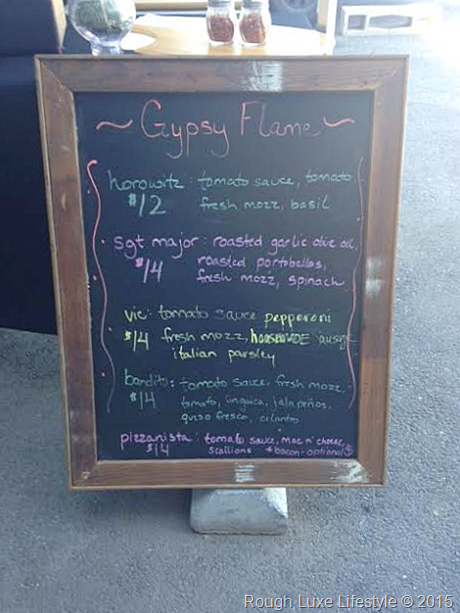 ~ Gypsy Flame ~
horowitz: tomato sauce, tomato
$12 fresh mozz, basil
sgt major: roasted garlic olive oil,
$14 roasted portobellos,
fresh mozz, spinach
vic: tomato sauce pepperoni
$14 fresh mozz, homemade
italian parsley
bandito: tomato sauce, fresh mozz,
$14 tomato, linguica, jalapeños,
queso fresco, cilantro
pizzanista: tomato sauce, mac n' cheese,
$14 scallions + bacon - optional
Rough Luxe Lifestyle © 2015